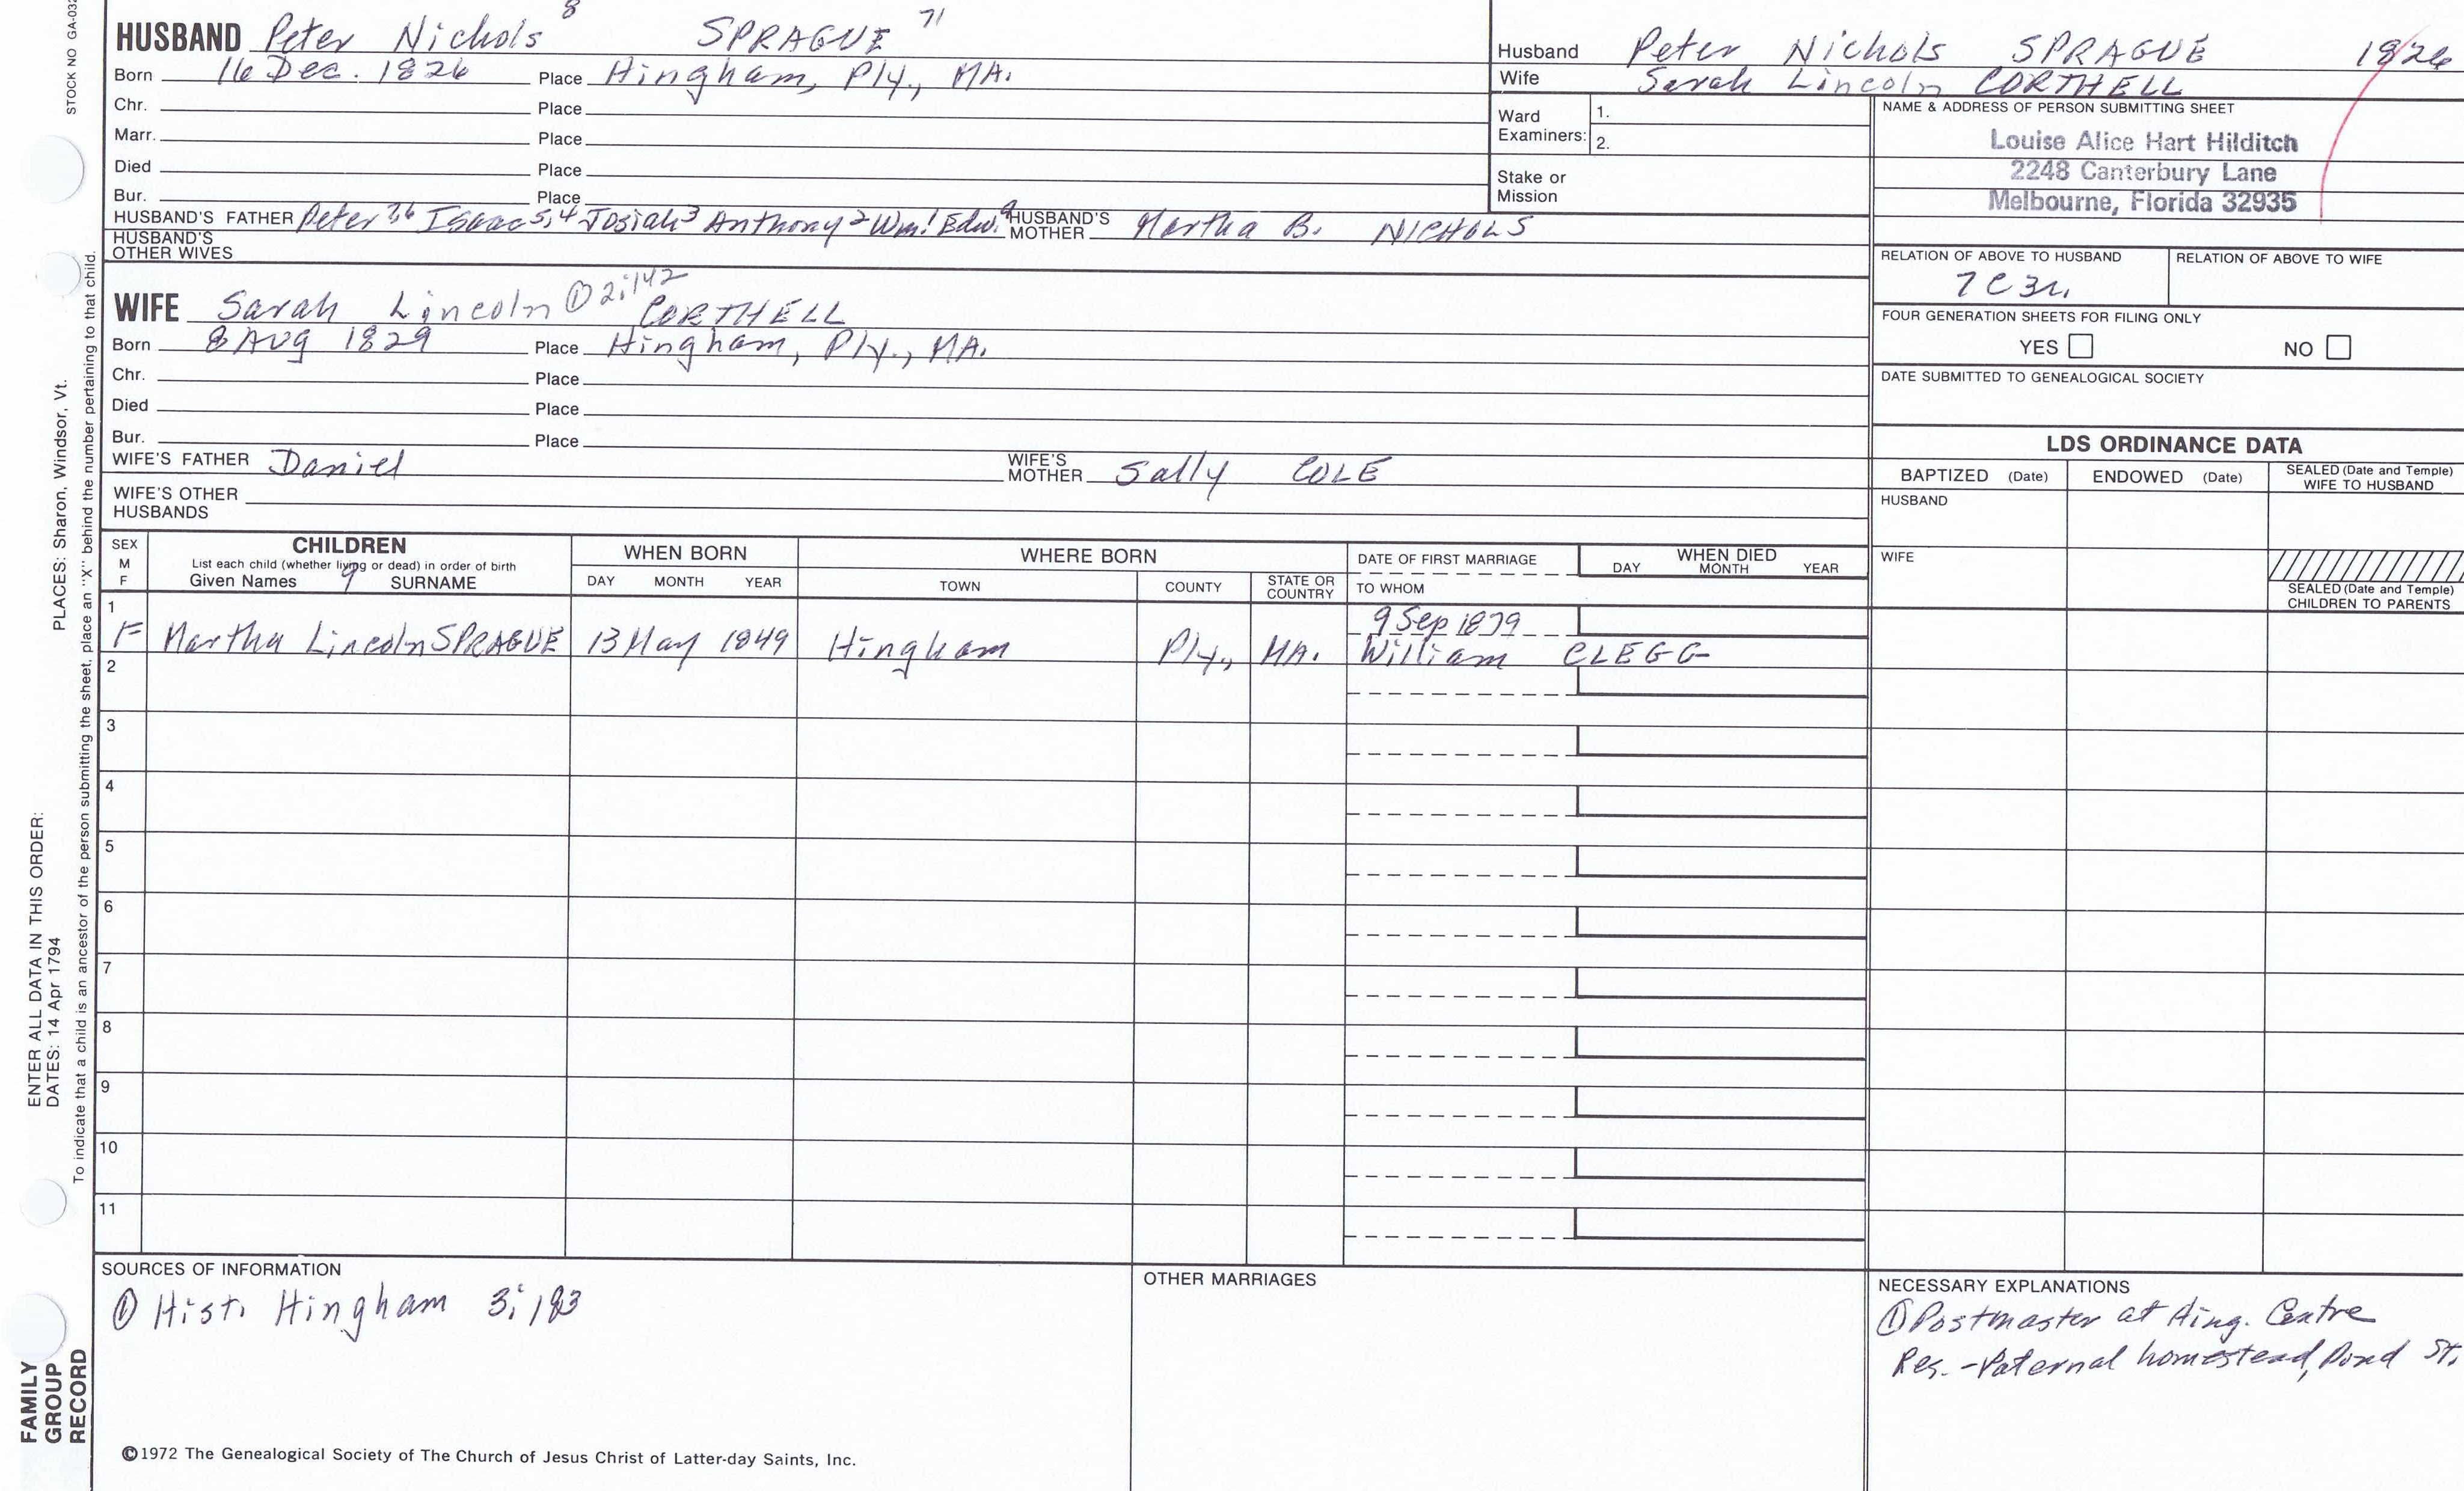 STOCK NO GA-032
HUSBAND Peter Nichols 8 SPRAGUE 71
Born 16 Dec. 1826 Place Hingham, Ply., MA.
Chr. Place
Marr. Place
Died Place
Bur. Place
HUSBAND'S FATHER Peter 7,6 Isaac 5,4 Josiah 3 Anthony 2 Wm! Edw. HUSBAND'S MOTHER Martha B. NICHOLS
HUSBAND'S OTHER WIVES
WIFE Sarah Lincoln ① 2:142 CORTHELL
Born 8 AUG 1829 Place Hingham, Ply., MA.
Chr. Place
Died Place
Bur. Place
WIFE'S FATHER Daniel WIFE'S MOTHER Sally COLE
WIFE'S OTHER HUSBANDS
Husband Peter Nichols SPRAGUE 1826
Wife Sarah Lincoln CORTHELL
Ward Examiners: 1.
2.
Stake or Mission
NAME & ADDRESS OF PERSON SUBMITTING SHEET
Louise Alice Hart Hilditch
2248 Canterbury Lane
Melbourne, Florida 32935
RELATION OF ABOVE TO HUSBAND RELATION OF ABOVE TO WIFE
7C3r.
FOUR GENERATION SHEETS FOR FILING ONLY
YES NO
DATE SUBMITTED TO GENEALOGICAL SOCIETY
LDS ORDINANCE DATA
BAPTIZED (Date) ENDOWED (Date) SEALED (Date and Temple) WIFE TO HUSBAND
HUSBAND
WIFE
SEALED (Date and Temple) CHILDREN TO PARENTS
SEX M F
CHILDREN
List each child (whether living or dead) in order of birth
Given Names 9 SURNAME
WHEN BORN
DAY MONTH YEAR
WHERE BORN
TOWN COUNTY STATE OR COUNTRY
DATE OF FIRST MARRIAGE
TO WHOM
WHEN DIED
DAY MONTH YEAR
1
9 Sep 1879
F Martha Lincoln SPRAGUE 13 May 1849 Hingham Ply., MA. William CLEGG
2
3
4
5
6
7
8
9
10
11
SOURCES OF INFORMATION
① Hist. Hingham 3:183
OTHER MARRIAGES
NECESSARY EXPLANATIONS
① Postmaster at Hing. Centre
Res. - Paternal homestead, Pond St.
©1972 The Genealogical Society of The Church of Jesus Christ of Latter-day Saints, Inc.
FAMILY
GROUP
RECORD
ENTER ALL DATA IN THIS ORDER:
DATES: 14 Apr 1794
PLACES: Sharon, Windsor, Vt.
To indicate that a child is an ancestor of the person submitting the sheet, place an "X" behind the number pertaining to that child.